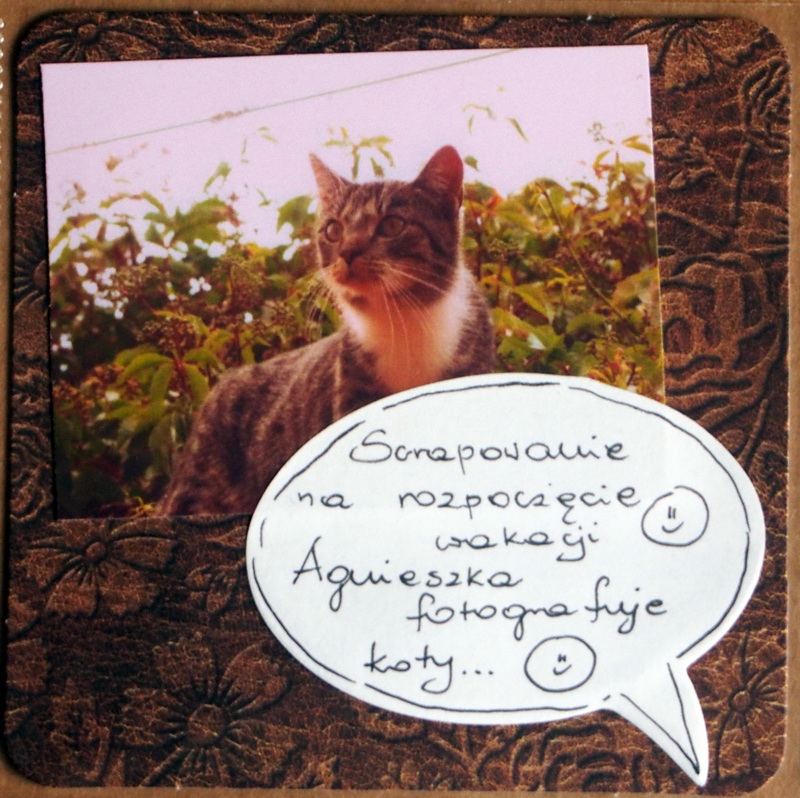 Scrapowanie
na rozpoczęcie
wakacji
Agnieszka
fotografuje
koty...